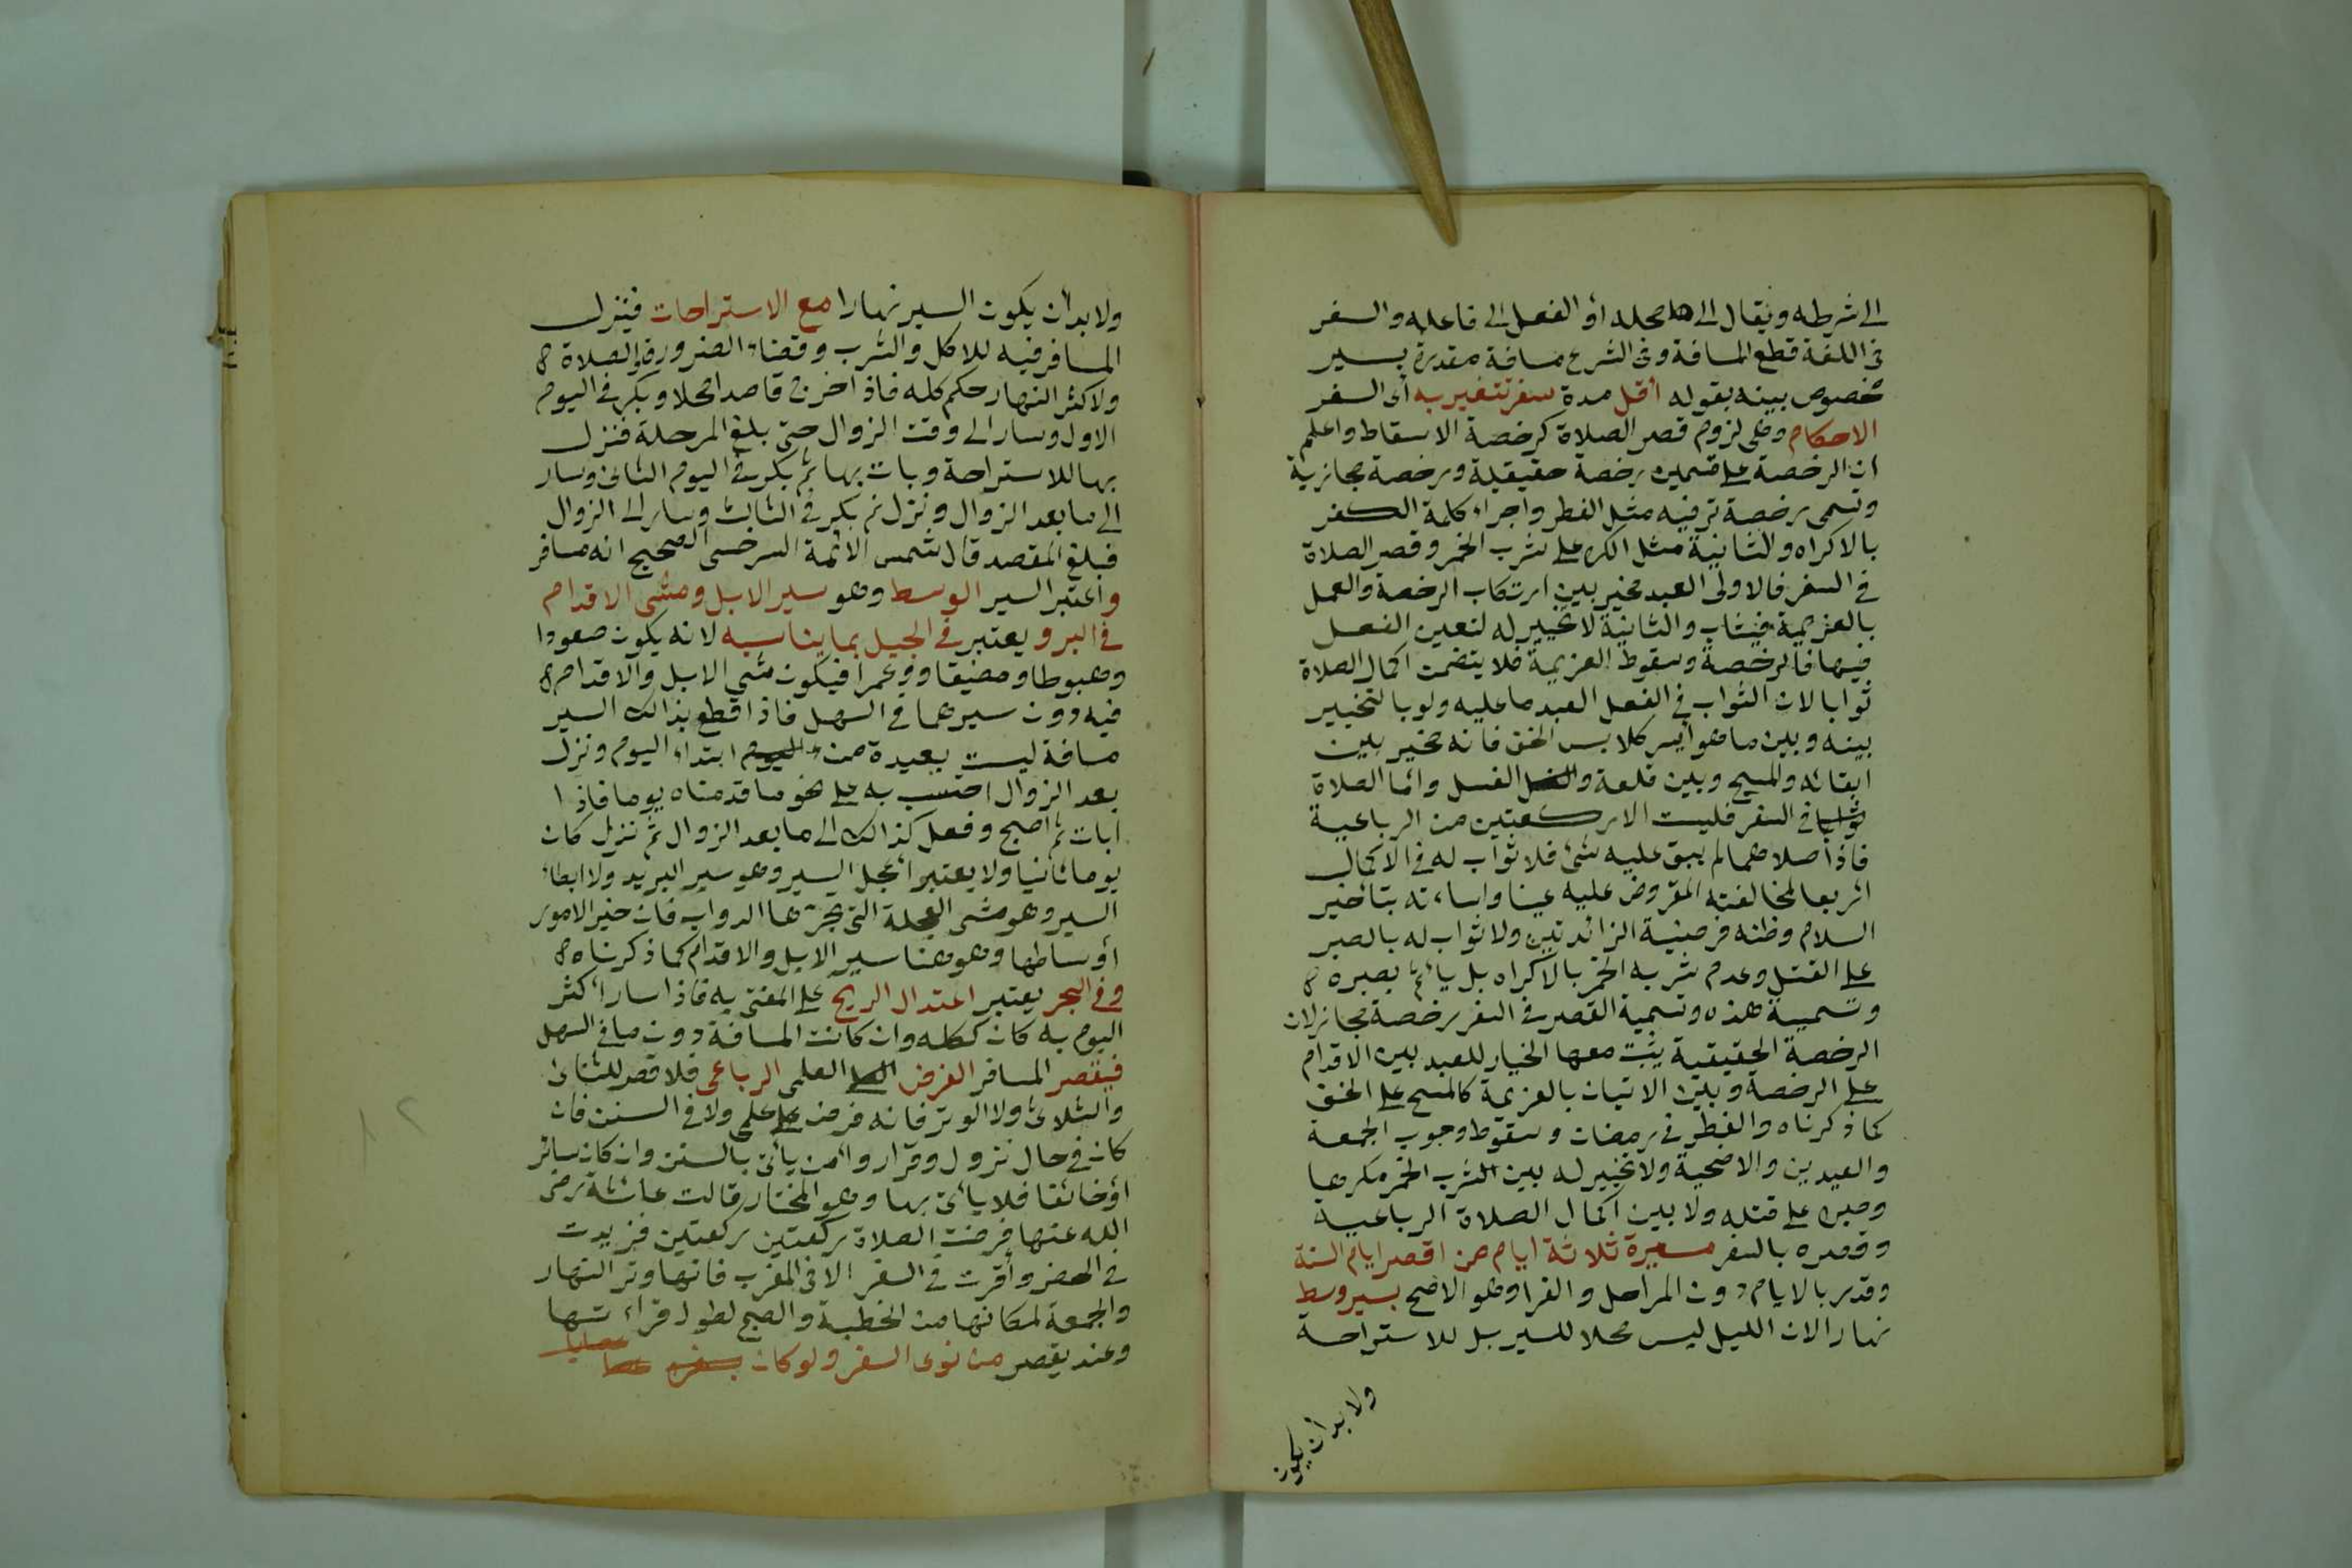 الى شرطه ويقال الى محله أو الفعل الى فاعله والسفر
فى اللغة قطع المسافة وفى الشرع مسافة مقدرة بسير
مخصوص بينه بقوله أقل مدة سفر تتغير به أى السفر
الاحكام وهى لزوم قصر الصلاة كرخصة الاسقاط واعلم
ان الرخصة على قسمين رخصة حقيقية ورخصة مجازية
وتسمى رخصة ترفيه مثل الفطر واجراء كلمة الكفر
بالاكراه والثانية مثل الكره على شرب الخمر وقصر الصلاة
فى السفر فالاولى العبد مخير بين ارتكاب الرخصة والعمل
بالعزيمة فيثاب والثانية لا تخيير له لتعين الفعل
فيها فالرخصة وسقوط العزيمة فلا يتضمن اكمال الصلاة
ثوابا لان الثواب فى الفعل العبد ما عليه ولو بالتخيير
بينه وبين ما هو أيسر كلابس الخف فانه مخير بين
ابقائه والمسح وبين قلعه والغسل وأما الصلاة
فى السفر فليست الا ركعتين من الرباعية
فاذا صلاهما لم يبق عليه شئ فلا ثواب له فى الاكمال
اربعا لمخالفته المفروض عليه عينا واساءته بتأخير
السلام وظنه فرضية الزائدتين ولا ثواب له بالصبر
على القتل وعدم شربه الخمر بالاكراه بل يأثم بصبره
وتسمية هذه وتسمية القصر فى السفر رخصة مجاز لان
الرخصة الحقيقية يثبت معها الخيار للعبد بين الاقدام
على الرخصة وبين الاتيان بالعزيمة كالمسح على الخف
كما ذكرناه والفطر فى رمضان وسقوط وجوب الجمعة
والعيدين والاضحية ولا تخيير له بين الشرب الخمر مكرها
وصبره على قتله ولا بين اكمال الصلاة الرباعية
وقصره بالسفر مسيرة ثلاثة ايام من اقصر ايام السنة
وقدر بالايام دون المراحل والفراوهو الاصح بسير وسط
نهارا لان الليل ليس محلا للسير بل للاستراحة
ولا بد أن يكون
ولا بد أن يكون السير نهارا مع الاستراحات فينزل
المسافر فيه للاكل والشرب وقضاء الضرورة والصلاة
ولاكثر النهار حكم كله فاذا خرج قاصدا محلا وبكر فى اليوم
الاول وسار الى وقت الزوال حتى بلغ المرحلة فنزل
بها للاستراحة وبات بها ثم بكر فى اليوم الثانى وسار
الى ما بعد الزوال ونزل ثم بكر فى الثالث وسار الى الزوال
فبلغ المقصد قال شمس الائمة السرخسى الصحيح انه مسافر
واعتبر السير الوسط وهو سير الابل ومشى الاقدام
فى البر ويعتبر فى الجبل بما يناسبه لانه يكون صعودا
وهبوطا ومضيقا ووعرا فيكون مشى الابل والاقدام
فيه دون سيرهما فى السهل فاذا قطع بذالك السير
مسافة ليست بعيدة من ابتداء اليوم ونزل
بعد الزوال احتسب به على نحو ما قدمناه يوما فاذا
ابات ثم اصبح وفعل كذالك الى ما بعد الزوال ثم نزيل كان
يوما ثانيا ولا يعتبر أعجل السير وهو سير البريد ولا ابطأ
السير وهو مشى العجلة التى تجرها الدواب فان خير الامور
أوساطها وهو هنا سير الابل والاقدام كما ذكرناه
وفى البحر يعتبر اعتدال الريح على المفتى به فاذا سار أكثر
اليوم به كان ككله وان كانت المسافة دون ما فى السهل
فيقصر المسافر الفرض العلمى الرباعى فلا قصر للثنائى
والثلاثى ولا الوتر فانه فرض على علمى ولا فى السنن فان
كان فى حال نزول وقرار وأمن يأتى بالسنن وان كان سائر
أو خائفا فلا يأتى بها وهو المختار قالت عائشة رضى
الله عنها فرضت الصلاة ركعتين ركعتين فزيدت
فى الحضر وأقرت فى السفر الا فى المغرب فانها وتر النهار
والجمعة لمكانها من الخطبة والصبح لطول قراءتها
وعند يقصر من نوى السفر ولو كان بسفره عصا
عصايا
١٢